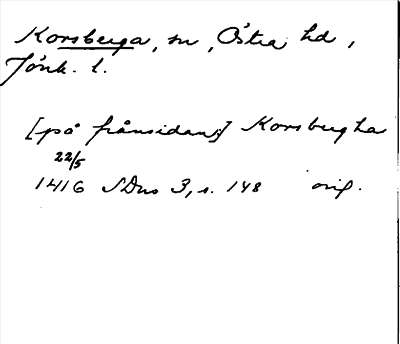 Korsberga, sn, Östra hd,
Jönk. l.
[på frånsidan:] Korsbergha
22/5
1416 SDns 3, s. 148 orig.